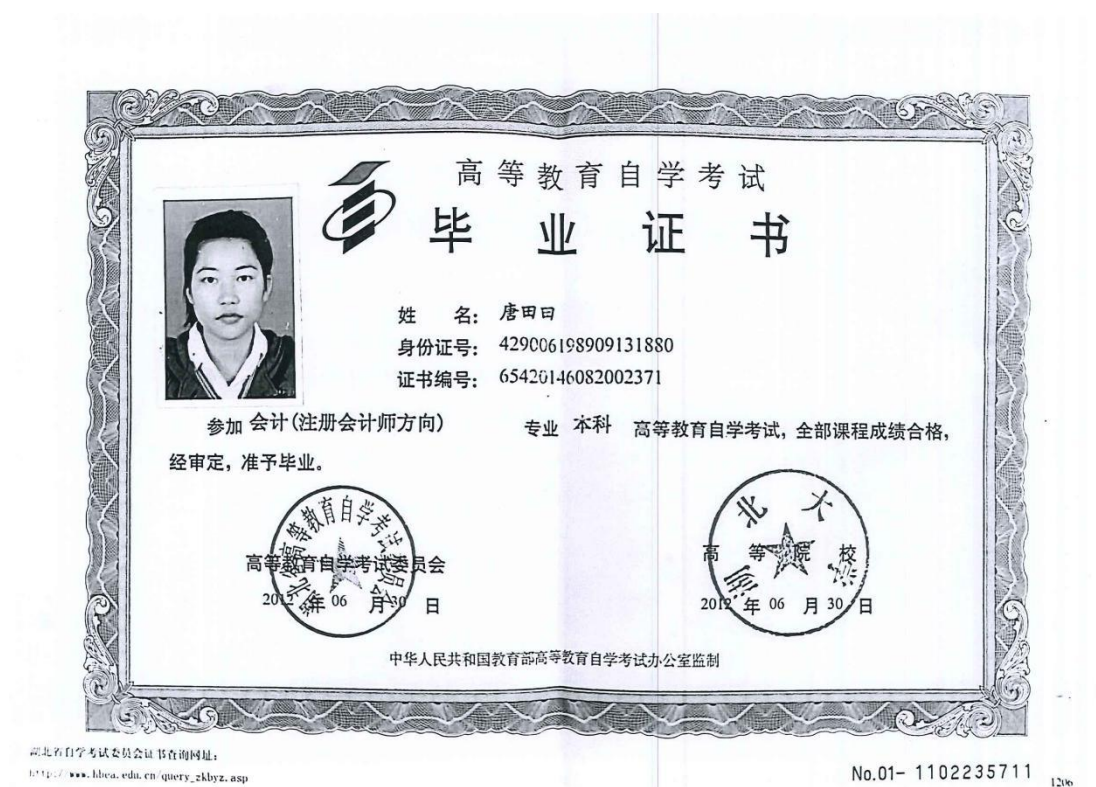 高等教育自学考试
毕业证书
姓名：唐田曰
身份证号：429006198909131880
证书编号：65420146082002371
参加 会计(注册会计师方向) 专业 本科 高等教育自学考试，全部课程成绩合格，
经审定，准予毕业。
湖北省高等教育自学考试委员会
高等教育自学考试委员会
2012 年 06 月 30 日
湖北大学
高等院校
2012 年 06 月 30 日
中华人民共和国教育部高等教育自学考试办公室监制
湖北省自学考试委员会证书查询网址：
http://www.hbea.edu.cn/query_zkbyz.asp
No.01- 1102235711
1206